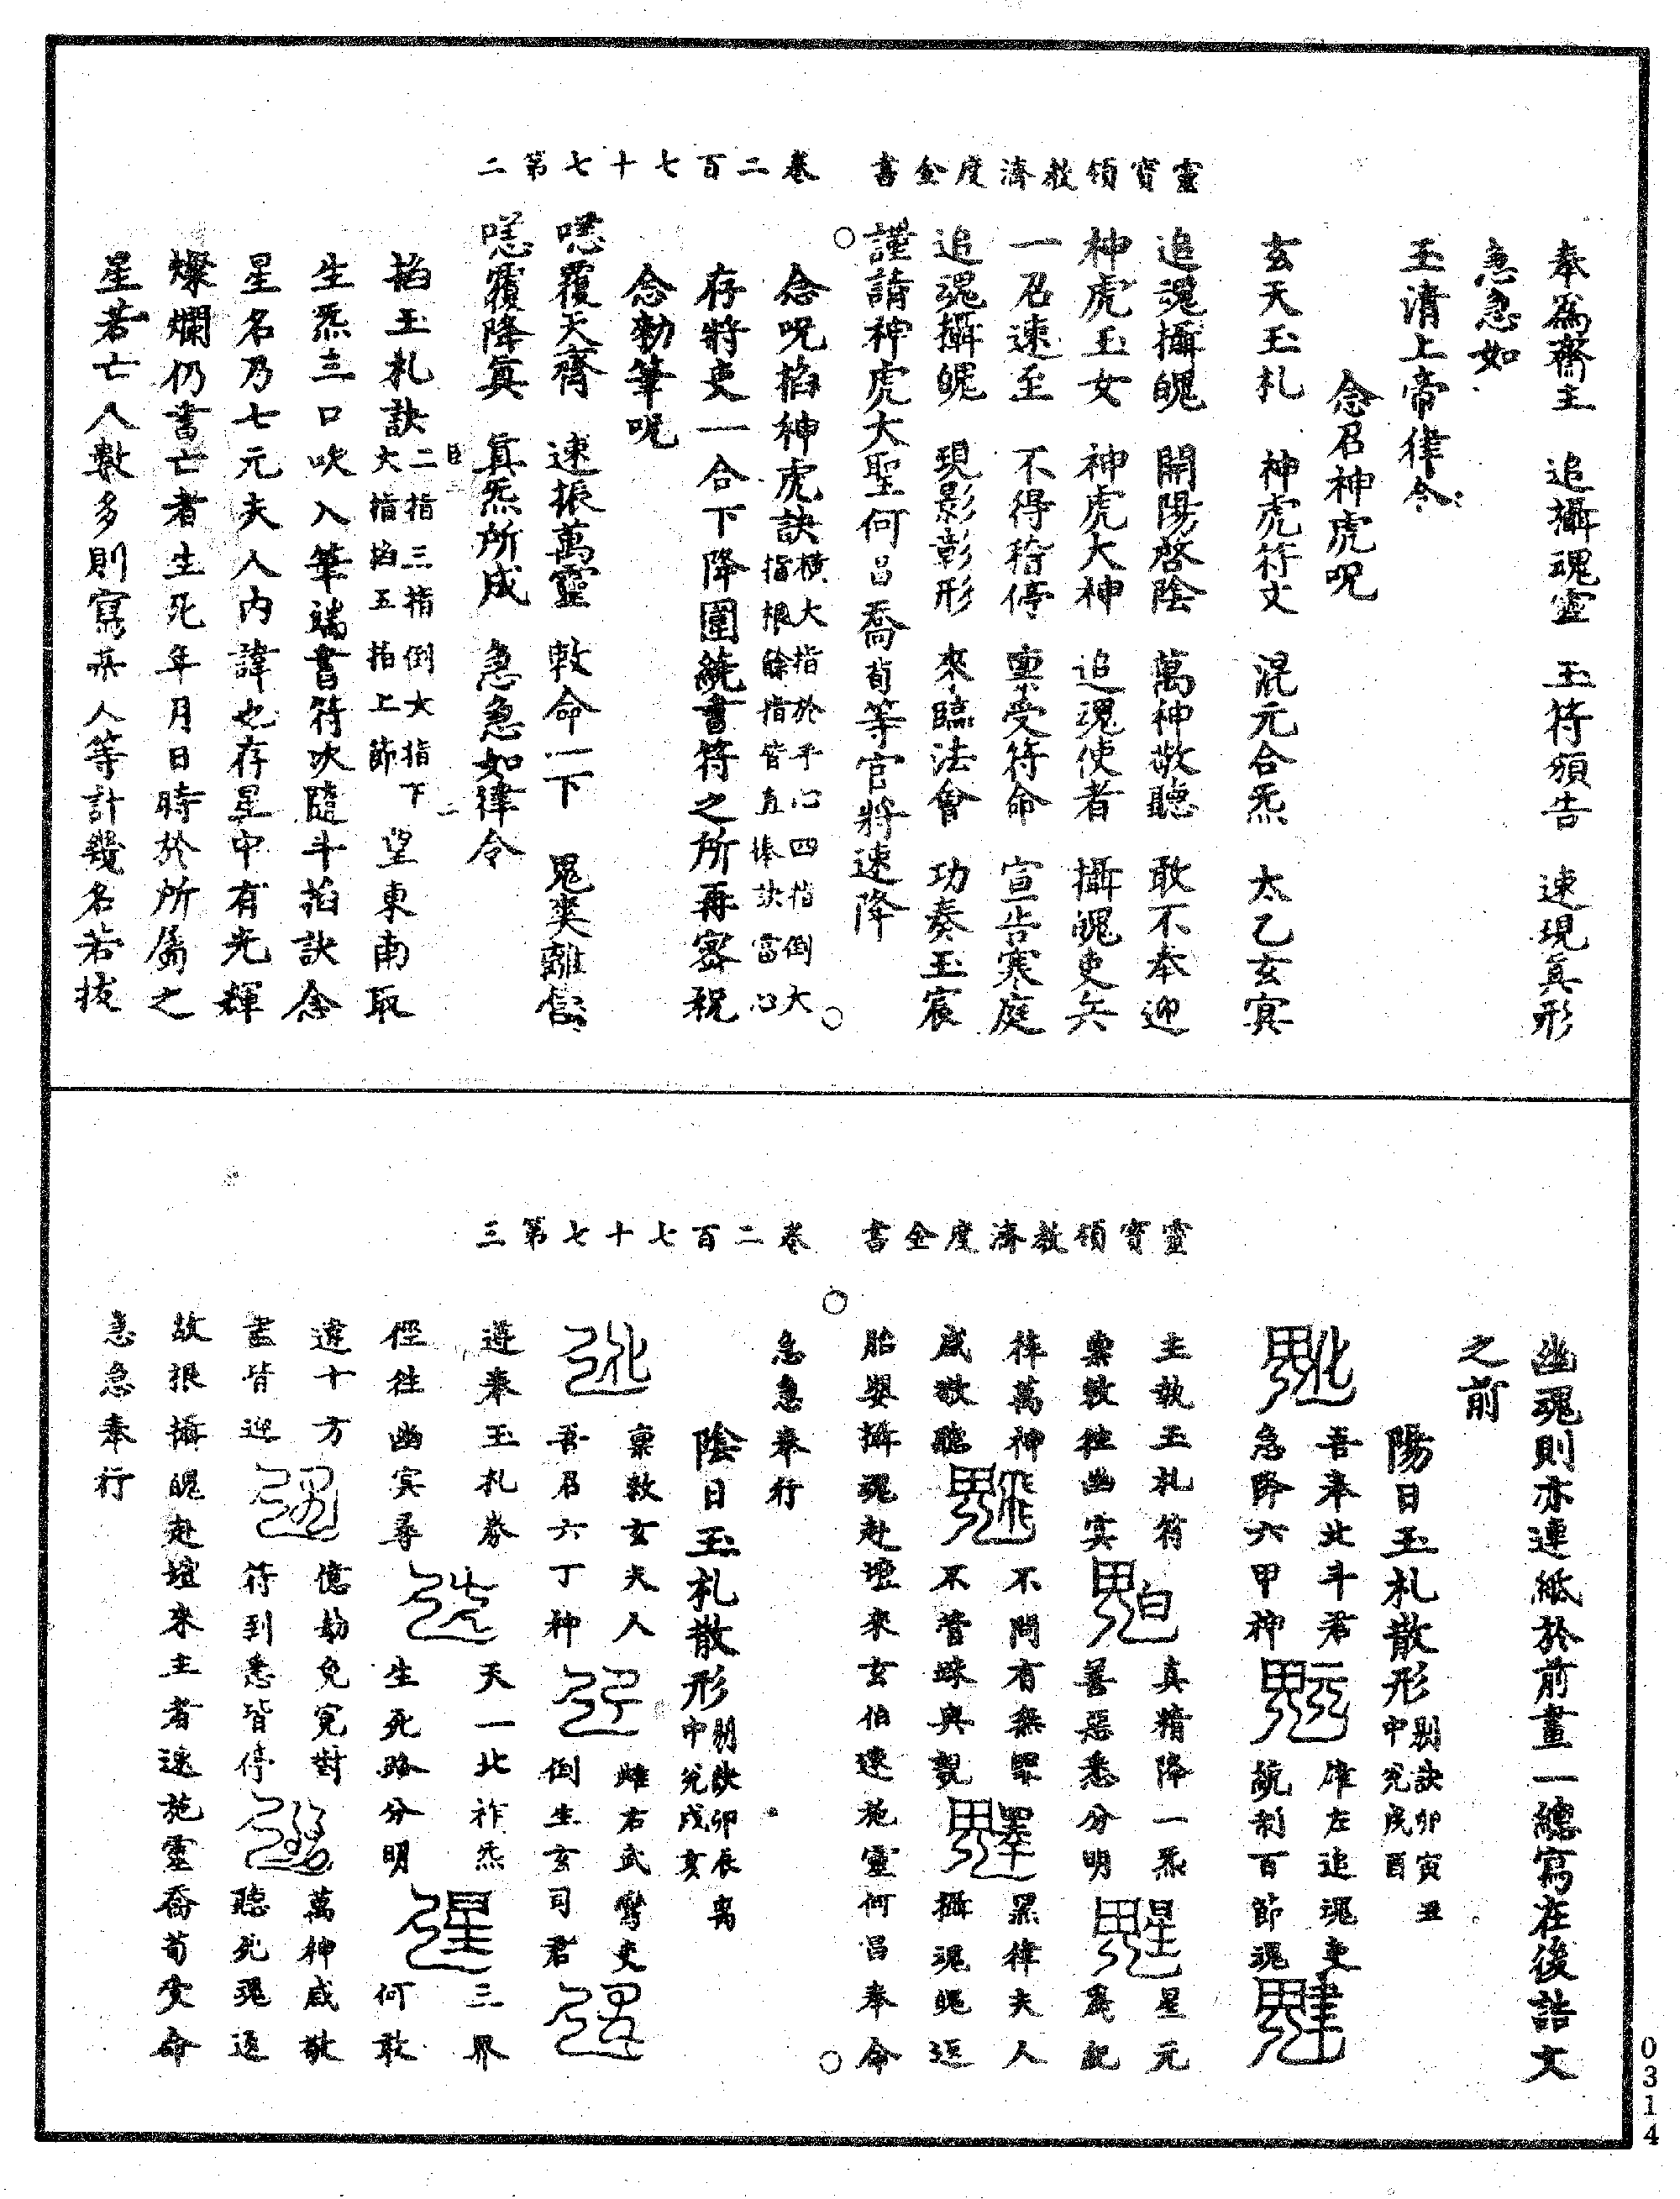 靈寶領教濟度金書　卷二百七十七第二
奉為齋主　追攝魂靈　玉符頒告　速現真形
急急如
玉清上帝律令
念召神虎呪
玄天玉札　神虎符文　混元合炁　太乙玄冥
追魂攝魄　開陽啓陰　萬神敬聽　敢不奉迎
神虎玉女　神虎大神　追魂使者　攝魄吏兵
一召速至　不得稽停　稟受符命　宣告寒庭
追魂攝魄　現影彰形　來臨法會　功奏玉宸
謹請神虎大聖何昌喬荀等官將速降
念呪掐神虎訣橫大指於手心四指倒大指根餘指皆直捧訣當心
存將吏一合下降圍繞書符之所再密祝
念勑筆呪
唿覆天齊　速振萬靈　敕命一下　鬼爽離
唿覆降真　真炁所成　急急如律令
掐玉札訣二指三指倒大指下大指掐五指上節　望東南取
生炁三口吹入筆端書符吹隨斗掐訣念
星名乃七元夫人內諱也存星中有光輝
燦爛仍書亡者生死年月日時於所屬之
星若亡人數多則寫某人等計幾名若拔
靈寶領教濟度金書　卷二百七十七第三
幽魂則亦連紙於前畫一總寫在後誥文
之前
陽日玉札散形剔訣卯寅丑中兊戌酉
吾奉北斗君　雄左追魂吏
急降六甲神　誠制百節魂
主執玉札符　真精降一炁　星元
稟敕往幽冥　善惡悉分明　為紀
律萬神　不問有無罪　黑律夫人
咸敬聽　不管疎與親　攝魂魄返
胎嬰攝魂赴壇來玄伯速施靈何昌奉命
急急奉行
陰日玉札散形剔訣卯辰离中兊戌亥
稟敕玄夫人　雌右武鸞吏
吾召六丁神　倒生玄司君
遵奉玉札券　天一北祚炁　三界
徑往幽冥尋　生死路分明　何敢
違十方　億劫免冤對　萬神咸敬
畫皆迎　符到悉皆停　聽死魂返
故根攝魄赴壇來主者速施靈喬荀受命
急急奉行
0314